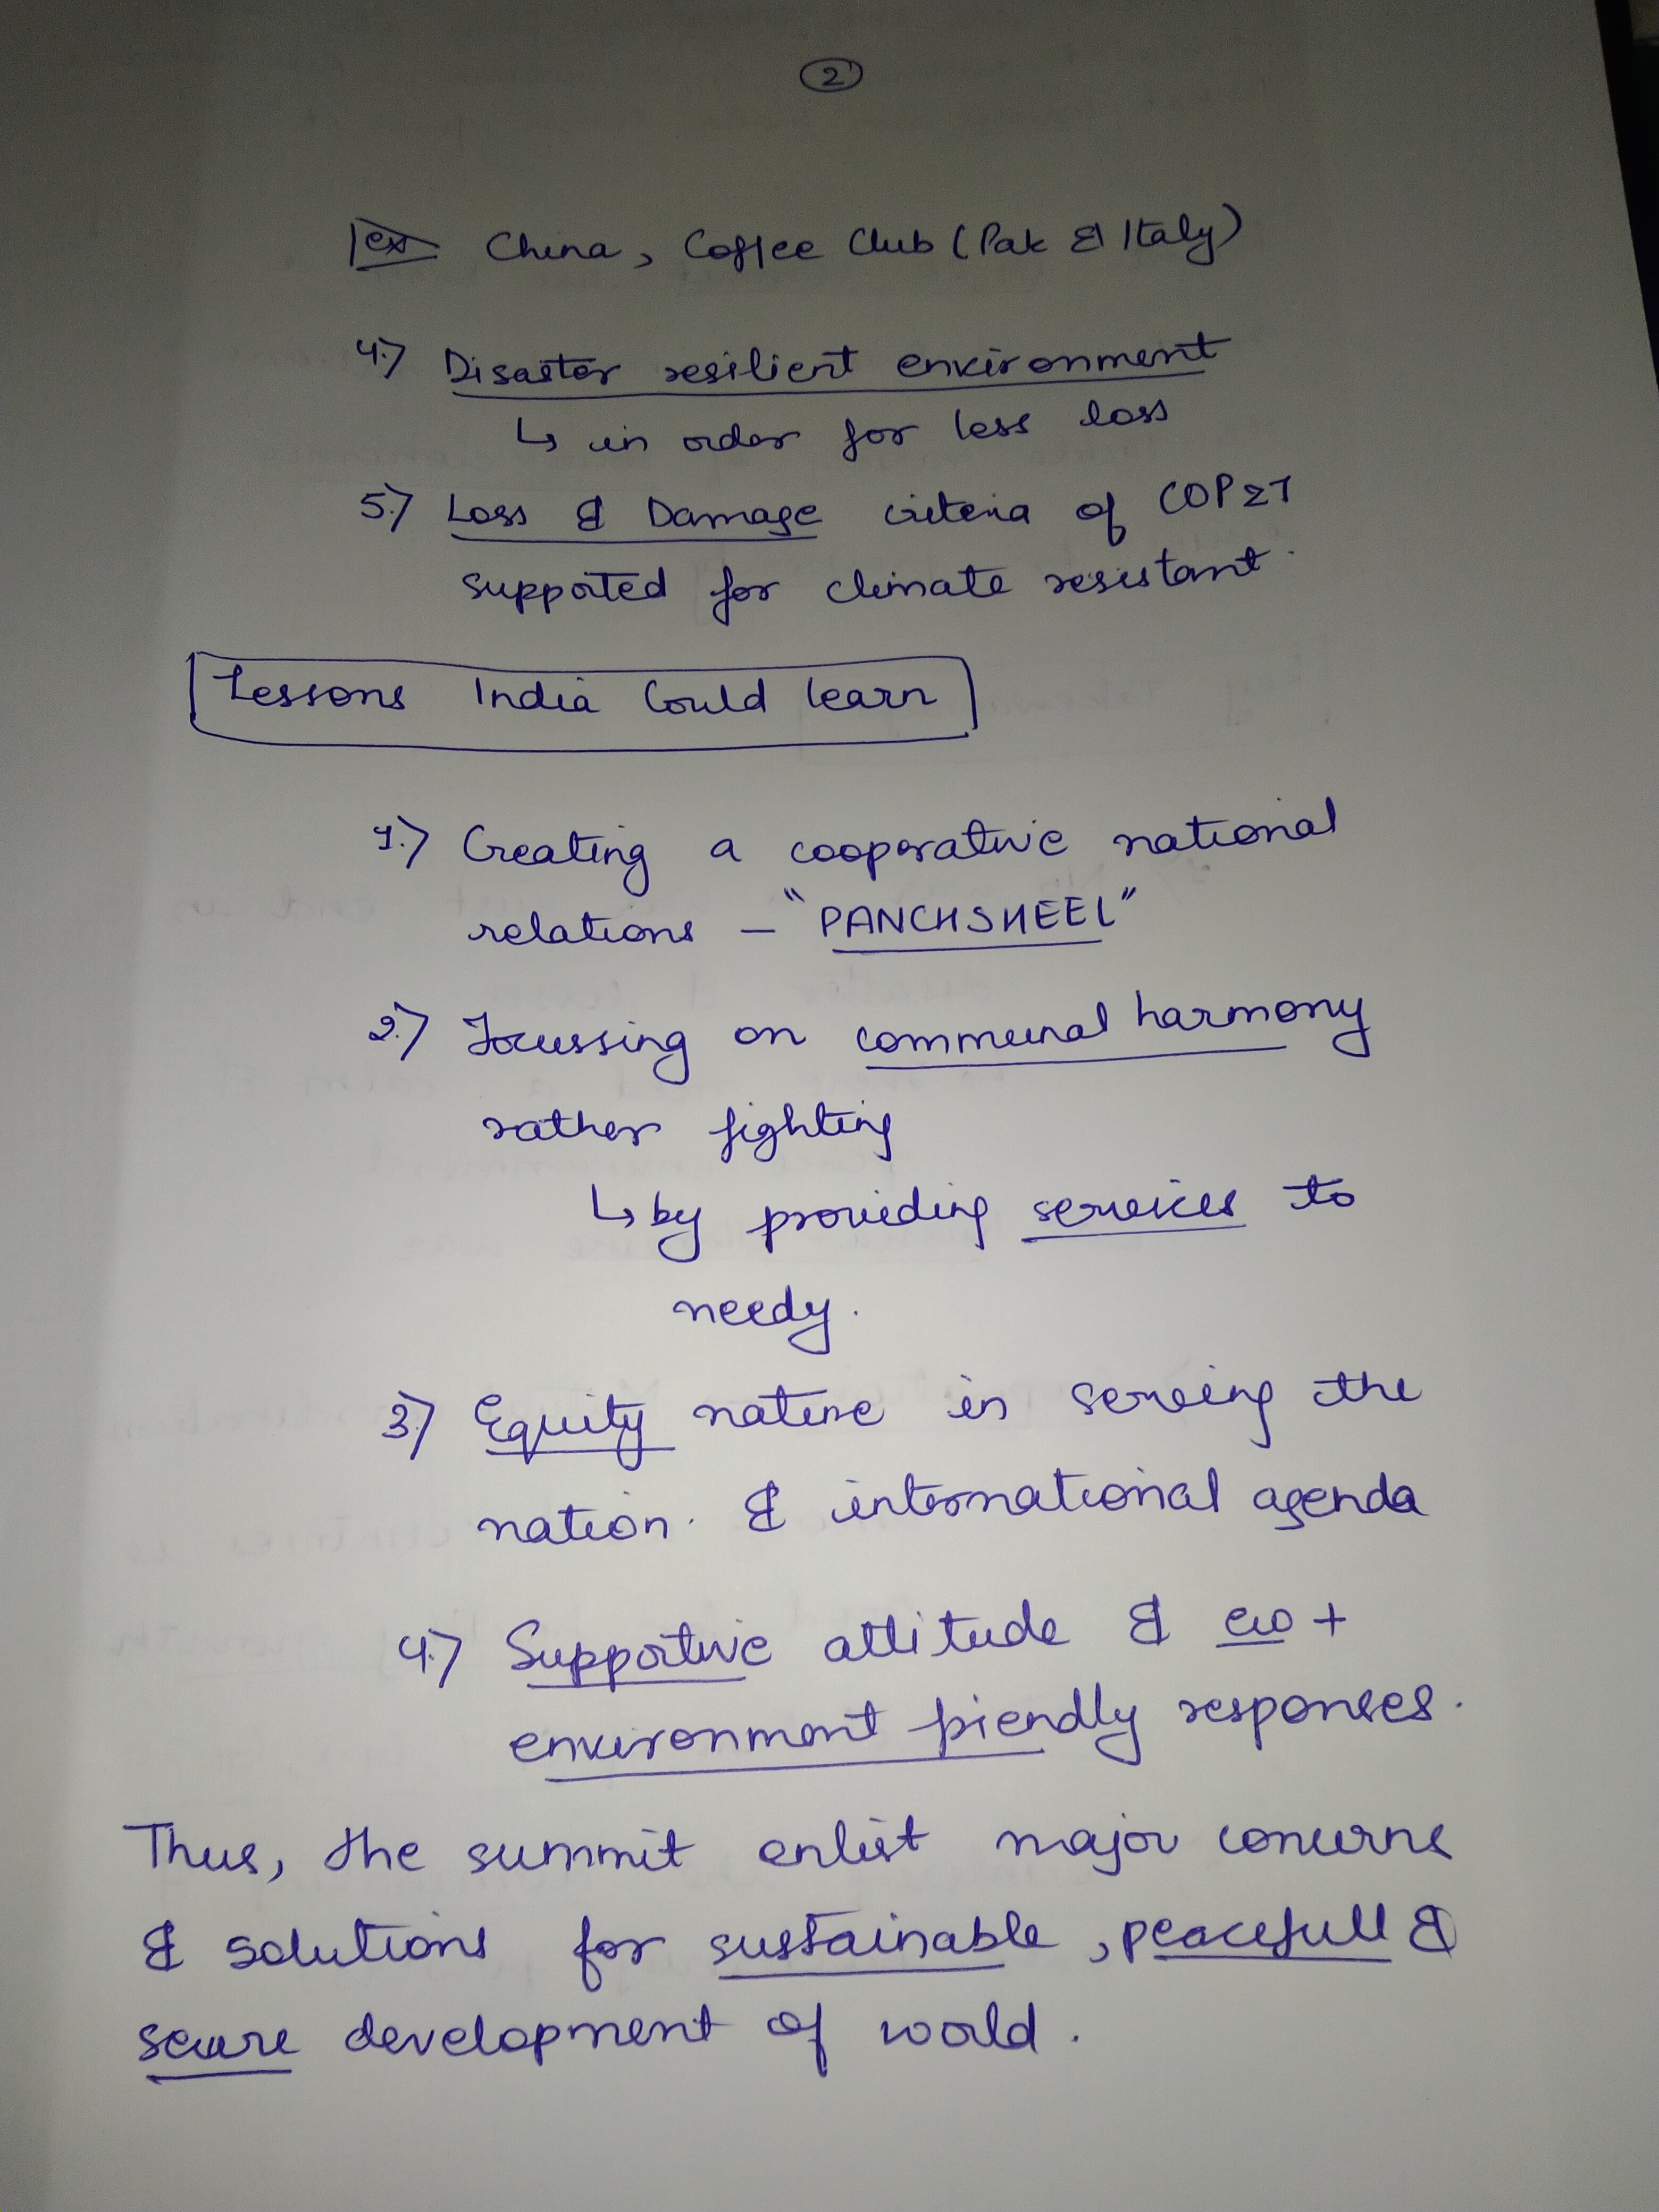 2
ex China, Coffee Club (Pak & Italy)
4.) Disaster resilient environment
↳ in order for less loss
5.) Loss & Damage criteria of COP27
supported for climate resistant.
Lessons India Could learn
1.) Creating a cooperative national
relations - "PANCHSHEEL"
2.) Focussing on communal harmony
rather fighting
↳ by providing services to
needy.
3.) Equity native in serving the
nation. & international agenda
4.) Supportive attitude & eco +
environment friendly responses.
Thus, the summit enlist major concerns
& solutions for sustainable, peacefull &
secure development of world.